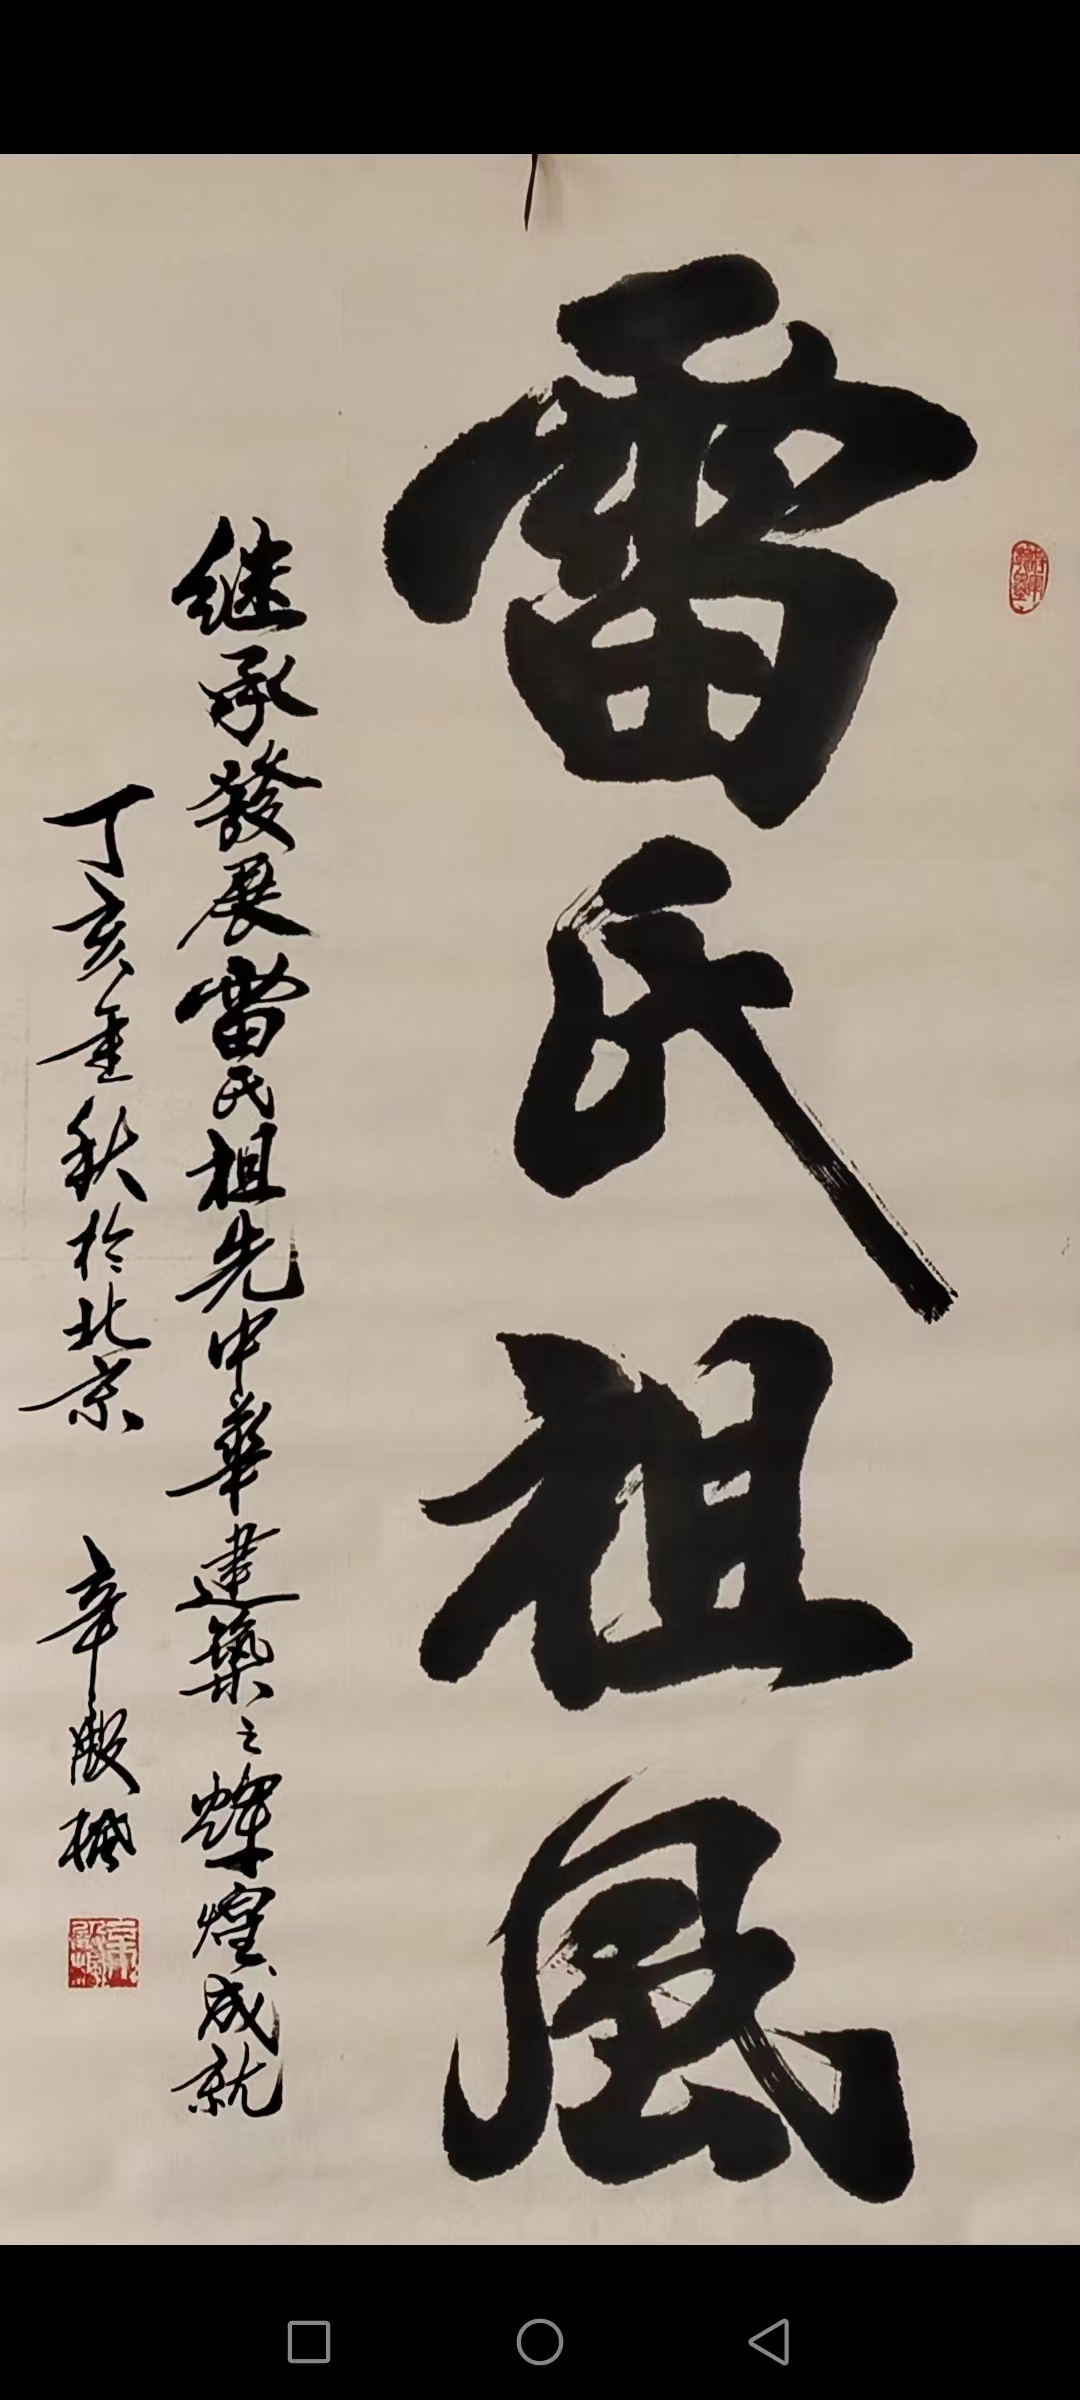 雷氏祖風
继承發展雷氏祖先中華建築之輝煌成就
丁亥重秋於北京
辛殿楓